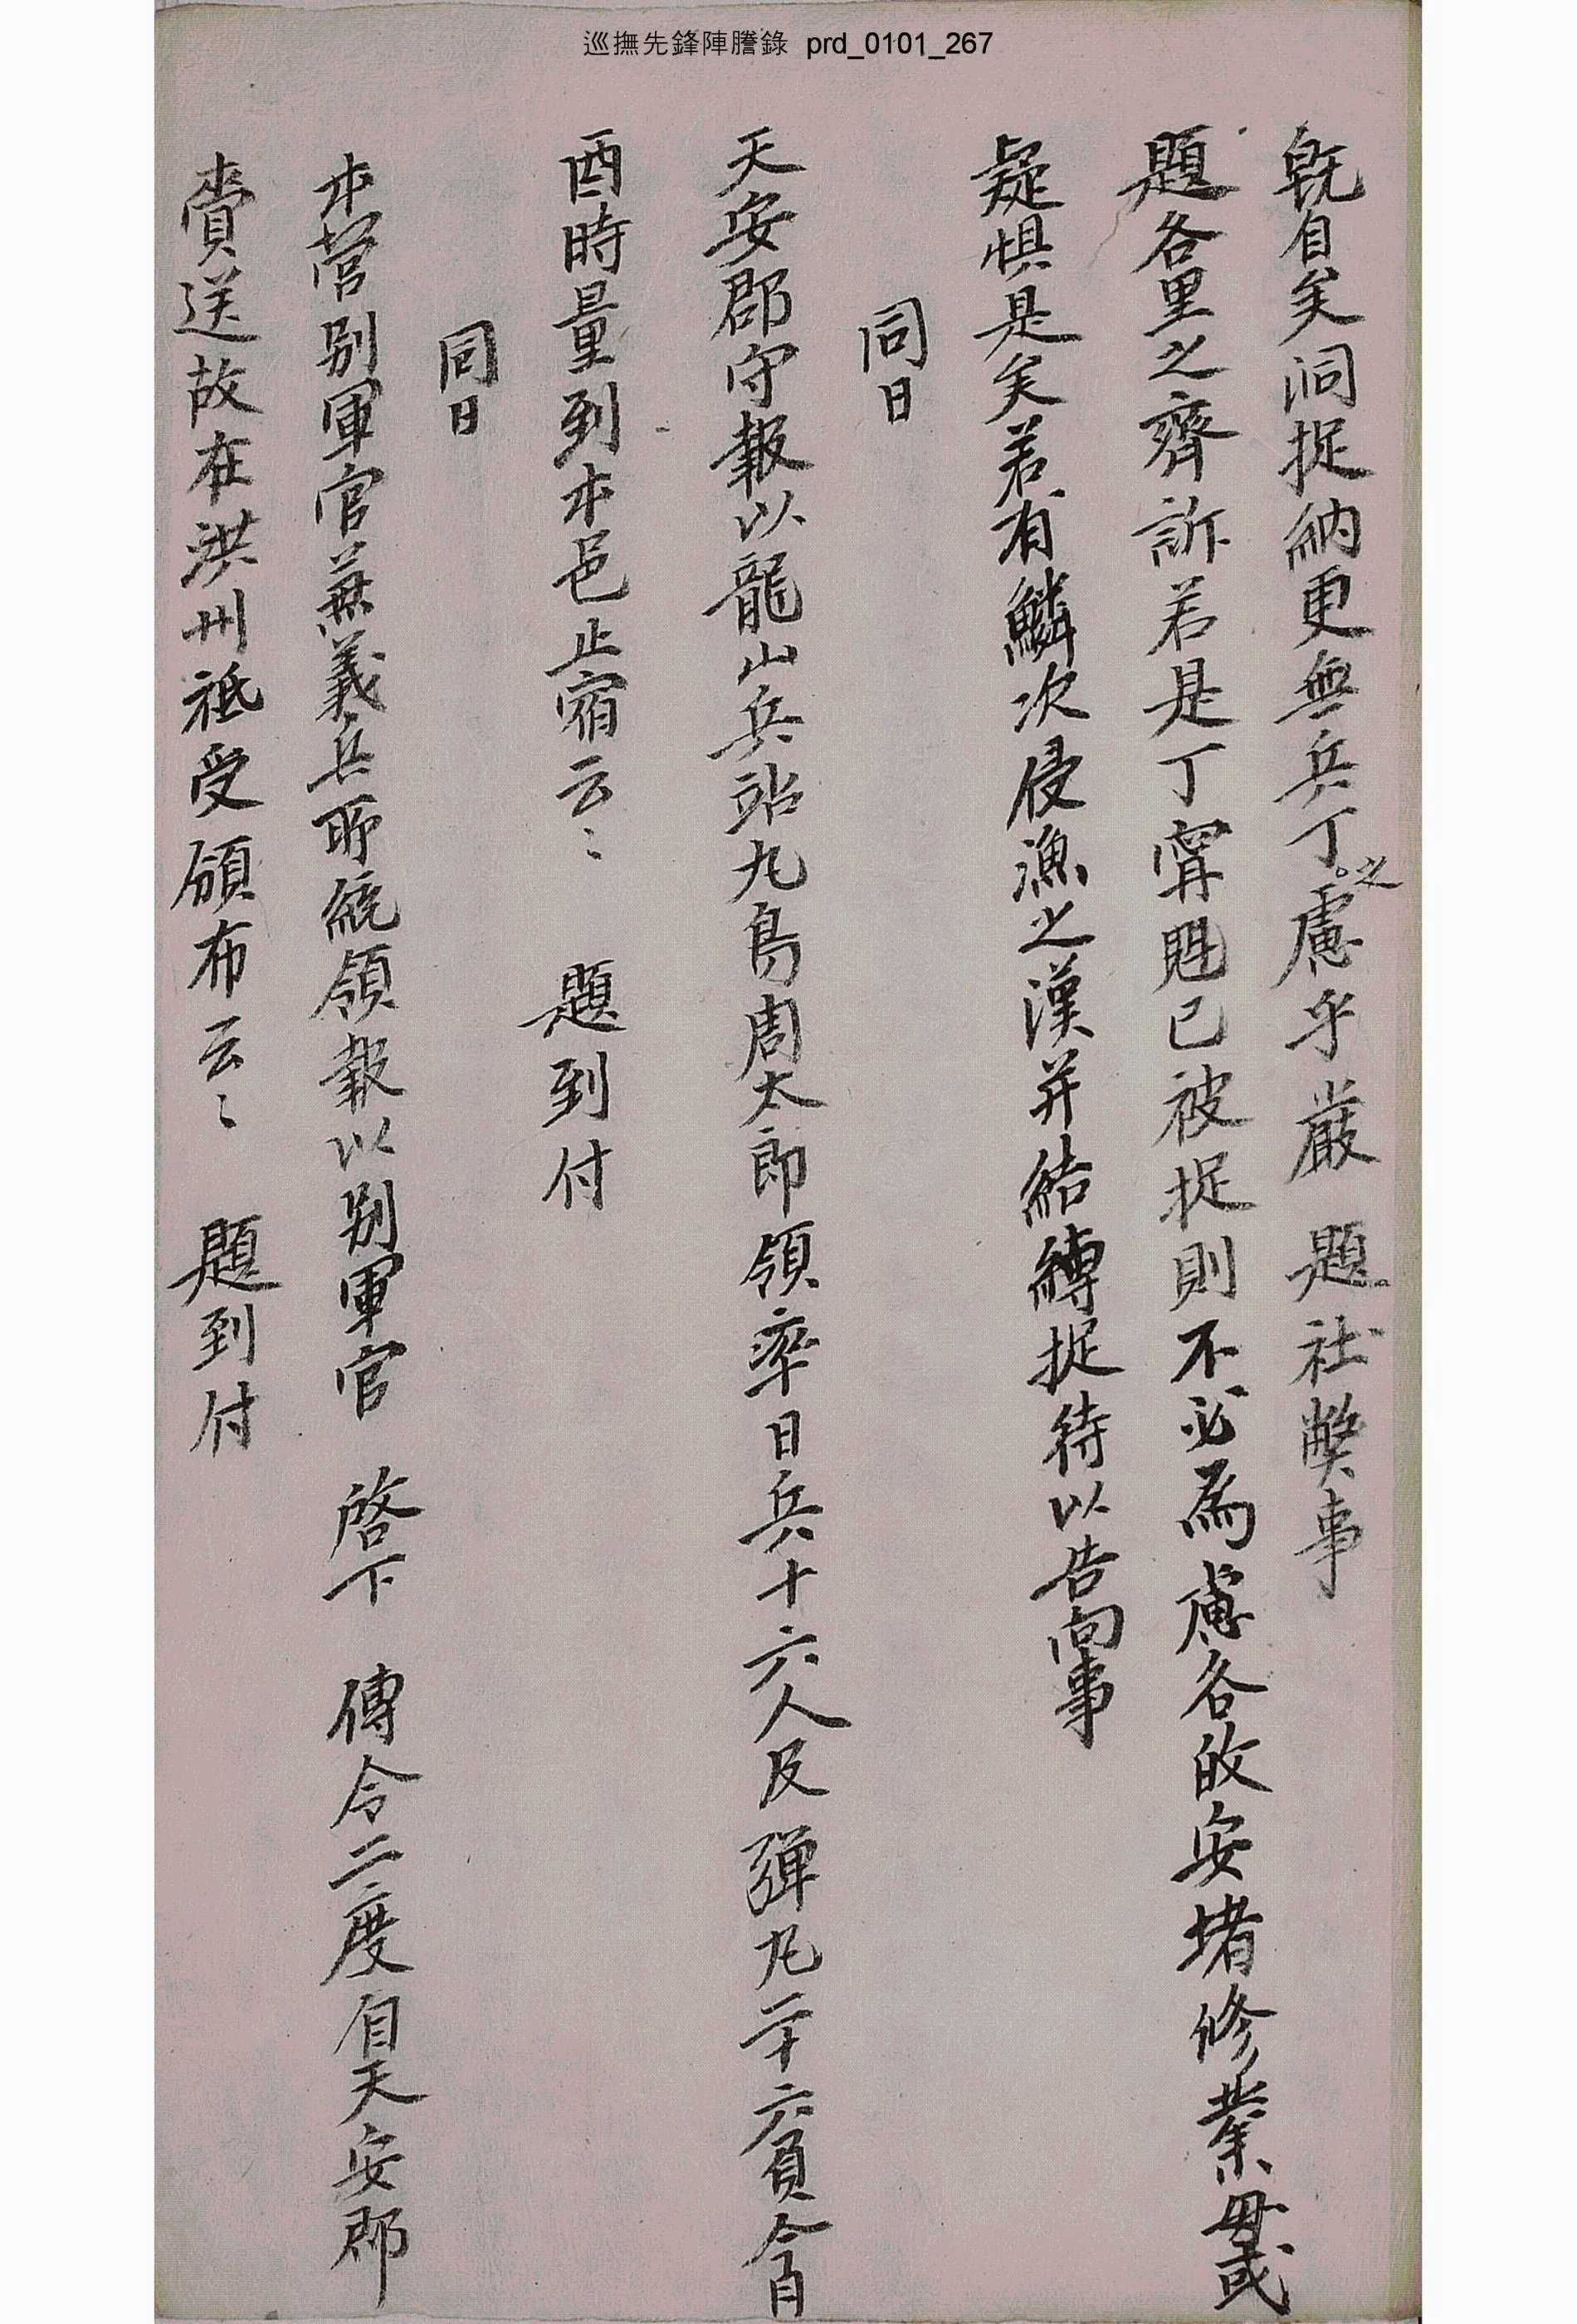 巡撫先鋒陣謄錄 prd_0101_267
旣自矣洞捉納更無兵丁之慮乎嚴 題社弊事
題各里之齊訴若是丁寧魁已被捉則不必爲慮各故安堵修業毋或
疑惧是矣若有鱗次侵漁之漢并結縛捉待以告向事
同日
天安郡守報以龍山兵站九島周太郎領率日兵十六人及彈丸二十六負今日
酉時量到本邑止宿云〻 題到付
同日
本營別軍官兼義兵所統領報以別軍官 啓下 傳令二度自天安郡
賚送故在洪州祗受頒布云〻 題到付